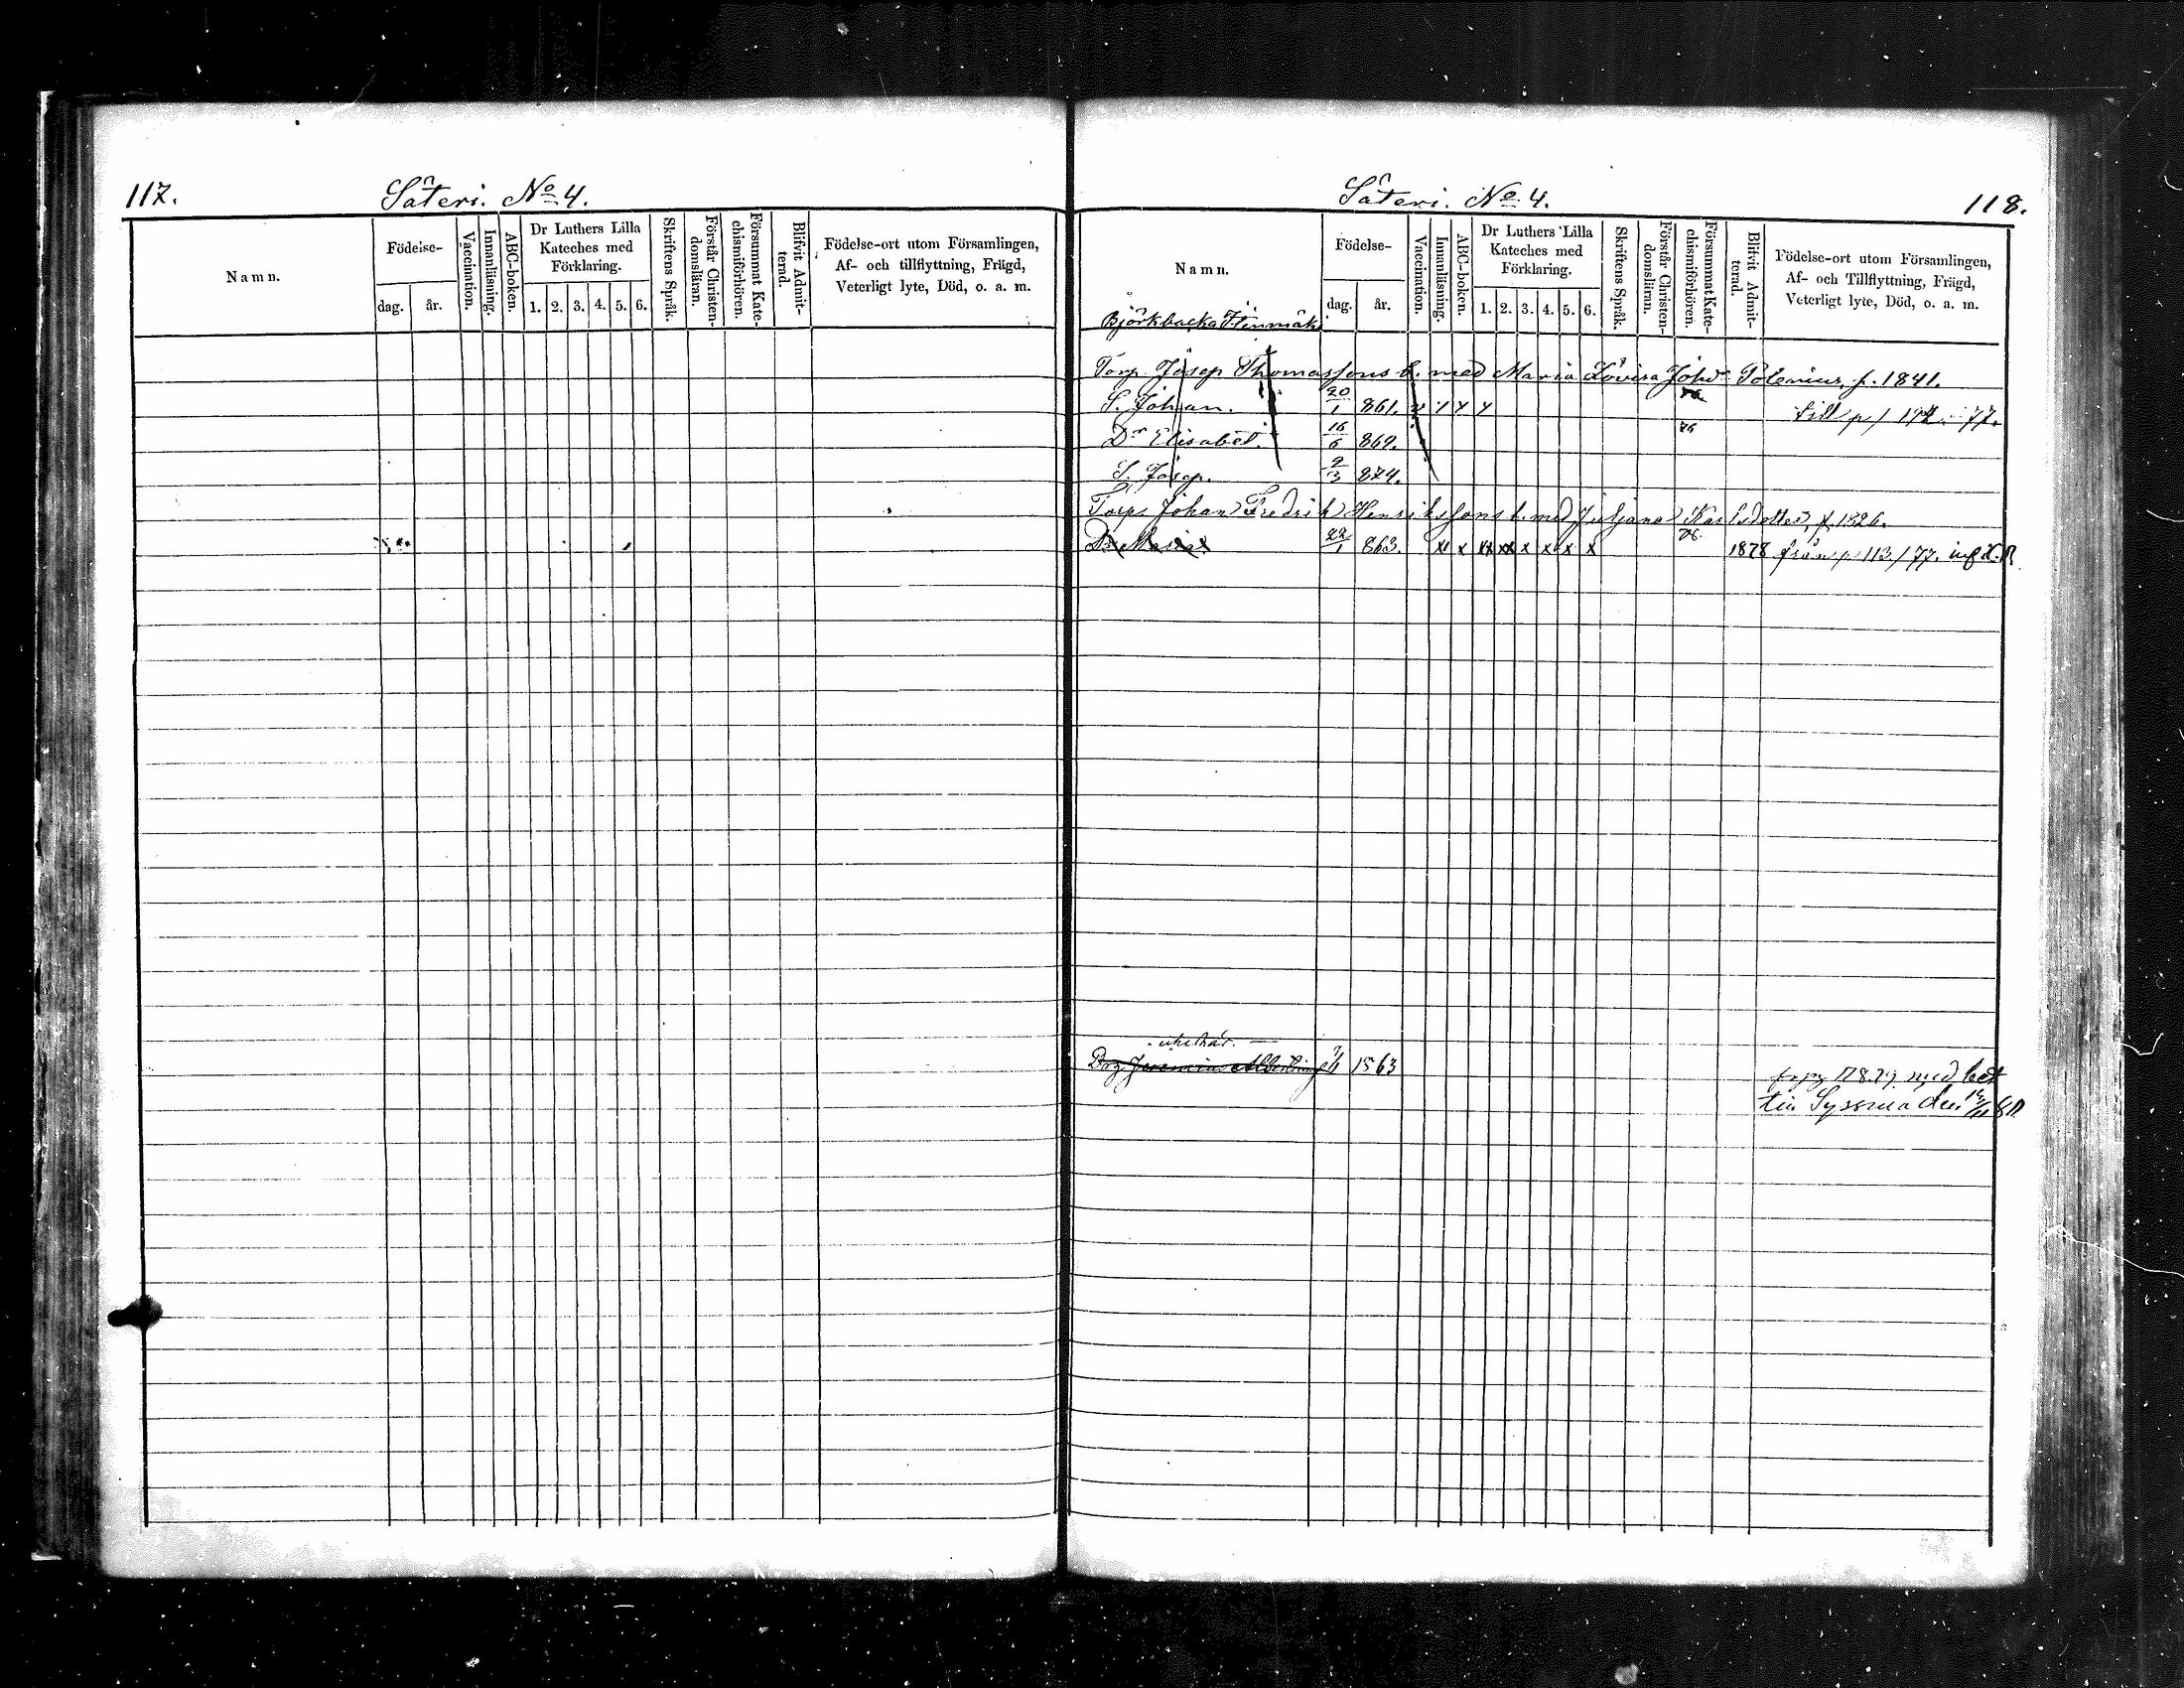 117.
Säteri. No 4.
Namn.
Födelse-
dag.
år.
Vaccination.
Innanläsning.
ABC-boken.
Dr Luthers Lilla
Kateches med
Förklaring.
1. 2. 3. 4. 5. 6.
Skriftens Språk.
Förstår Christen-
domsläran.
Försummat Kate-
chismiförhören.
Blifvit Admit-
terad.
Födelse-ort utom Församlingen,
Af- och tillflyttning, Frägd,
Veterligt lyte, Död, o. a. m.
Säteri. No 4.
118.
Namn.
Födelse-
dag.
år.
Vaccination.
Innanläsning.
ABC-boken.
Dr Luthers Lilla
Kateches med
Förklaring.
1. 2. 3. 4. 5. 6.
Skriftens Språk.
Förstår Christen-
domsläran.
Försummat Kate-
chismiförhören.
Blifvit Admit-
terad.
Födelse-ort utom Församlingen,
Af- och Tillflyttning, Frägd,
Veterligt lyte, Död, o. a. m.
Björkbacka
Torp. Josep Thomassons b. med Maria Lovisa Johdr Polenius, f. 1841.
S. Johan. 20/1 861. till p
Dr Elisabet. 16/6 869. 76
S. Josep. 2/3 874.
Torp. Johan Fredrik Henrikssons b. med Juljana Karlsdotter, f. 1826.
Dr Maria 22/1 863. x x xx xx x x x x 76. 1878 från p 113/77.
Drg 1563
med bet
Syssmä den